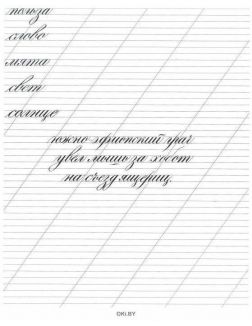 польза
слово
мята
свет
солнце
южно-эфиопский грач
увёл мышь за хобот
на съезд ящериц.
OKi.BY